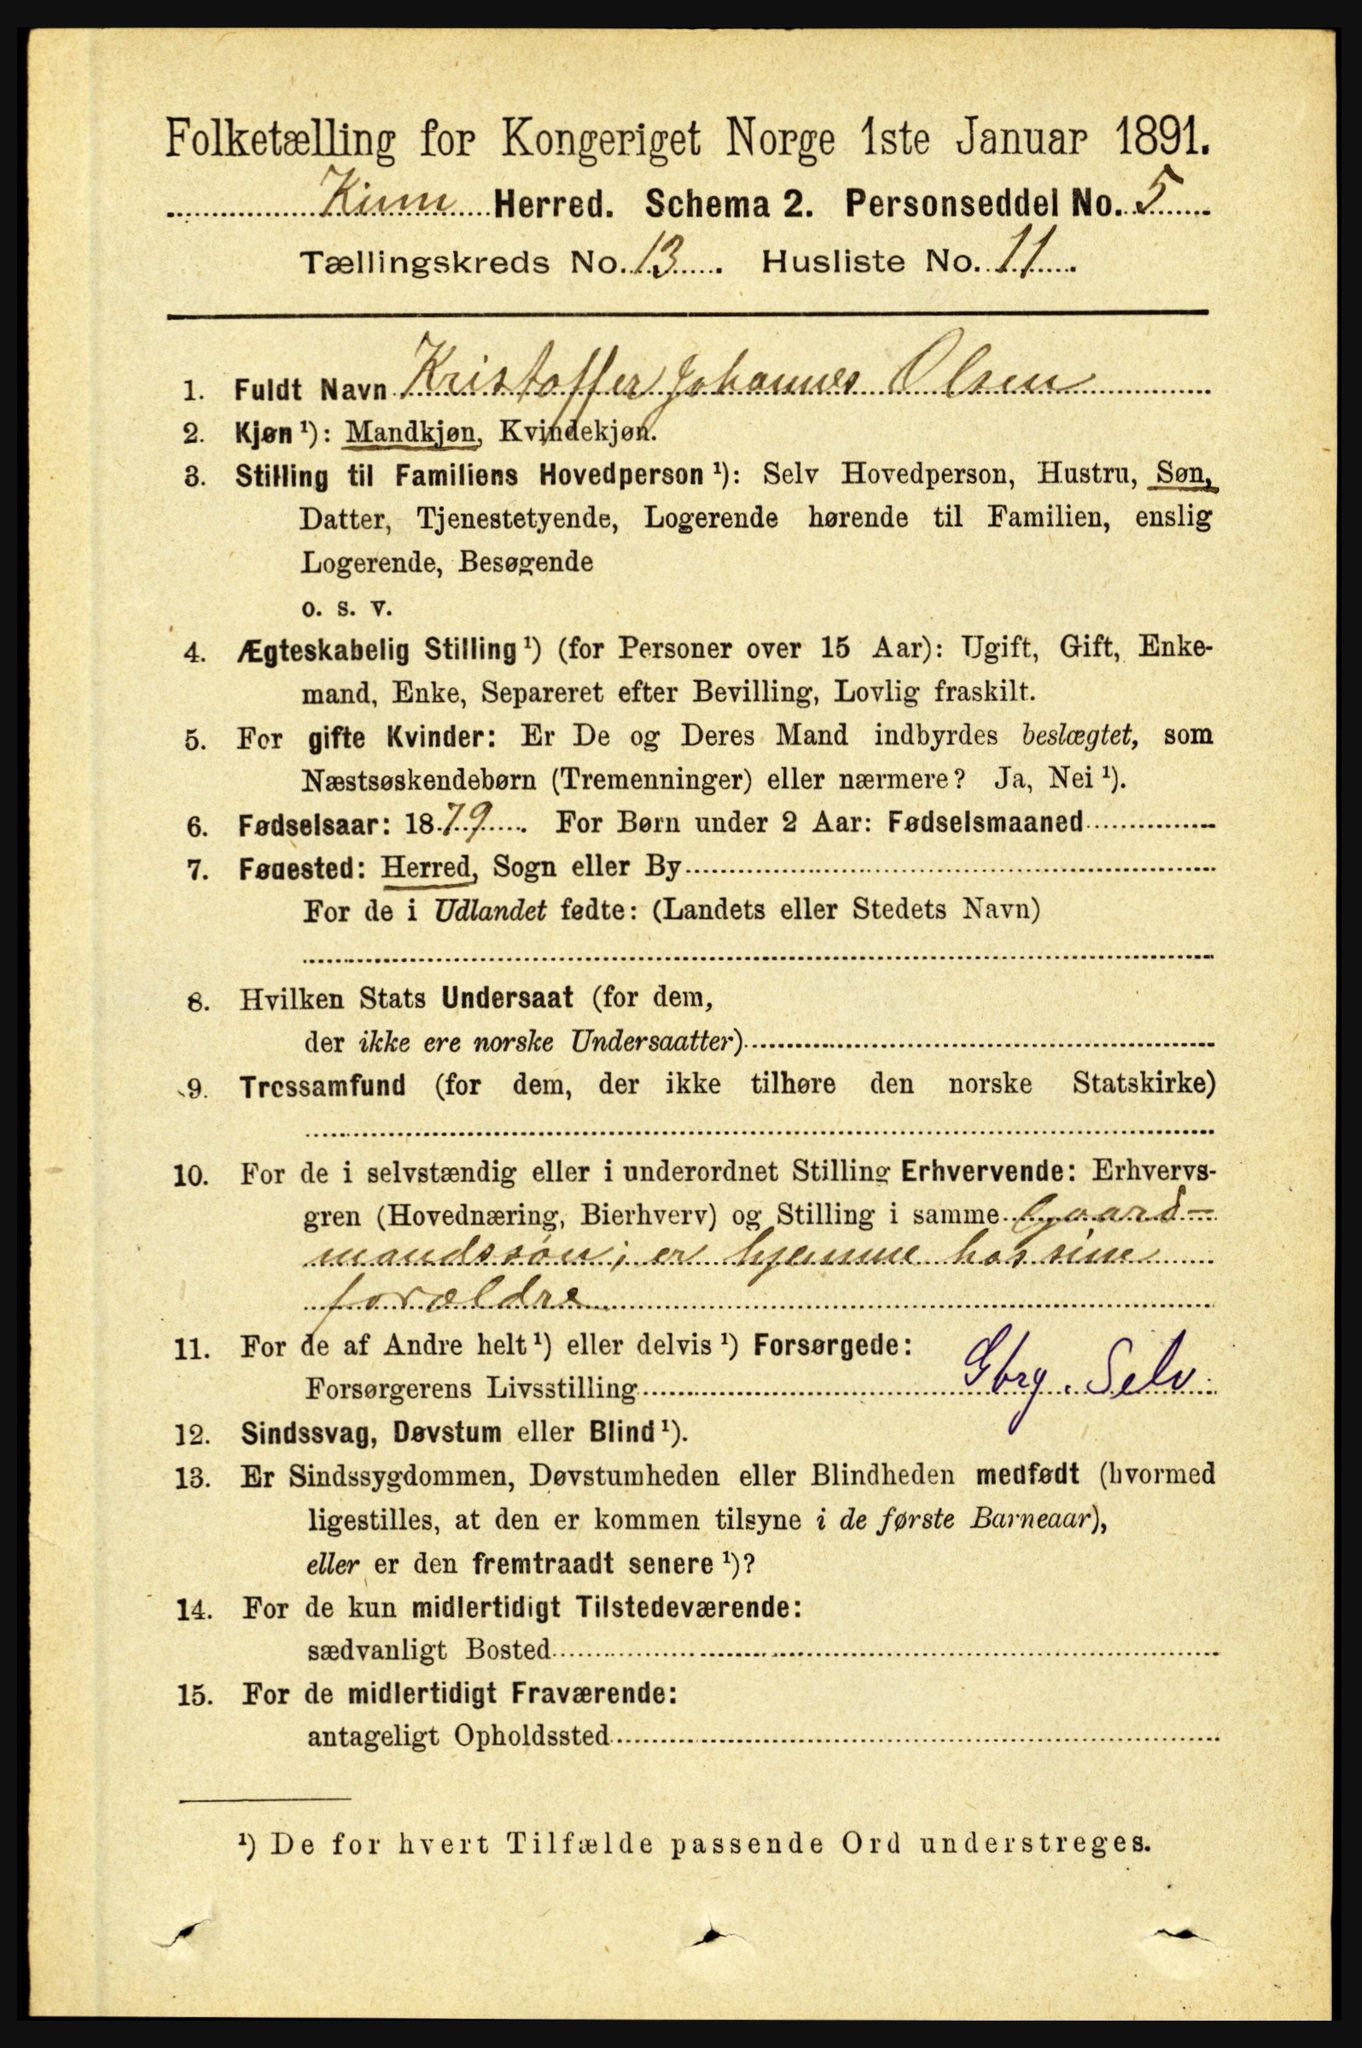 Folketælling for Kongeriget Norge 1ste Januar 1891.
Kinn Herred. Schema 2. Personseddel No. 5
Tællingskreds No. 13. Husliste No. 11.
1. Fuldt Navn Kristoffer Johannes Olsen
2. Kjøn ¹): Mandkjøn, Kvindekjøn.
3. Stilling til Familiens Hovedperson ¹): Selv Hovedperson, Hustru, Søn,
Datter, Tjenestetyende, Logerende hørende til Familien, enslig
Logerende, Besøgende
o. s. v.
4. Ægteskabelig Stilling ¹) (for Personer over 15 Aar): Ugift, Gift, Enke-
mand, Enke, Separeret efter Bevilling, Lovlig fraskilt.
5. For gifte Kvinder: Er De og Deres Mand indbyrdes beslægtet, som
Næstsøskendebørn (Tremenninger) eller nærmere? Ja, Nei ¹).
6. Fødselsaar: 1879. For Børn under 2 Aar: Fødselsmaaned
7. Fødested: Herred, Sogn eller By
For de i Udlandet fødte: (Landets eller Stedets Navn)
8. Hvilken Stats Undersaat (for dem,
der ikke ere norske Undersaatter)
9. Trossamfund (for dem, der ikke tilhøre den norske Statskirke)
10. For de i selvstændig eller i underordnet Stilling Erhvervende: Erhvervs-
gren (Hovednæring, Bierhverv) og Stilling i samme Gaard-
mandssøn; er hjemme hos sine
forældre
11. For de af Andre helt ¹) eller delvis ¹) Forsørgede:
Forsørgerens Livsstilling Gbrg. Selv
12. Sindssvag, Døvstum eller Blind ¹).
13. Er Sindssygdommen, Døvstumheden eller Blindheden medfødt (hvormed
ligestilles, at den er kommen tilsyne i de første Barneaar),
eller er den fremtraadt senere ¹)?
14. For de kun midlertidigt Tilstedeværende:
sædvanligt Bosted
15. For de midlertidigt Fraværende:
antageligt Opholdssted
¹) De for hvert Tilfælde passende Ord understreges.